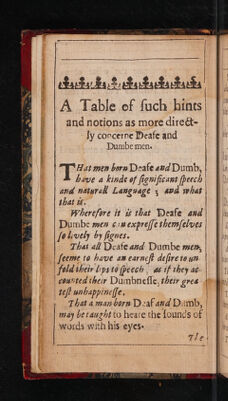 A Table of ſuch hints
and notions as more direct-
ly concerne Deafe and
Dumbe men.
THat men born Deafe and Dumb,
have a kinde of ſignificant ſpeech
and naturall Language ; and what
that is.
Wherefore it is that Deafe and
Dumbe men can expreſſe themſelves
ſo lively by ſignes.
That all Deafe and Dumbe men,
ſeeme to have an earneſt deſire to un
fold their lips to ſpeech, as if they ac
counted their Dumbneſſe, their grea
teſt unhappineſſe.
That a man born Deaf and Dumb,
may be taught to heare the ſounds of
words with his eyes.
The